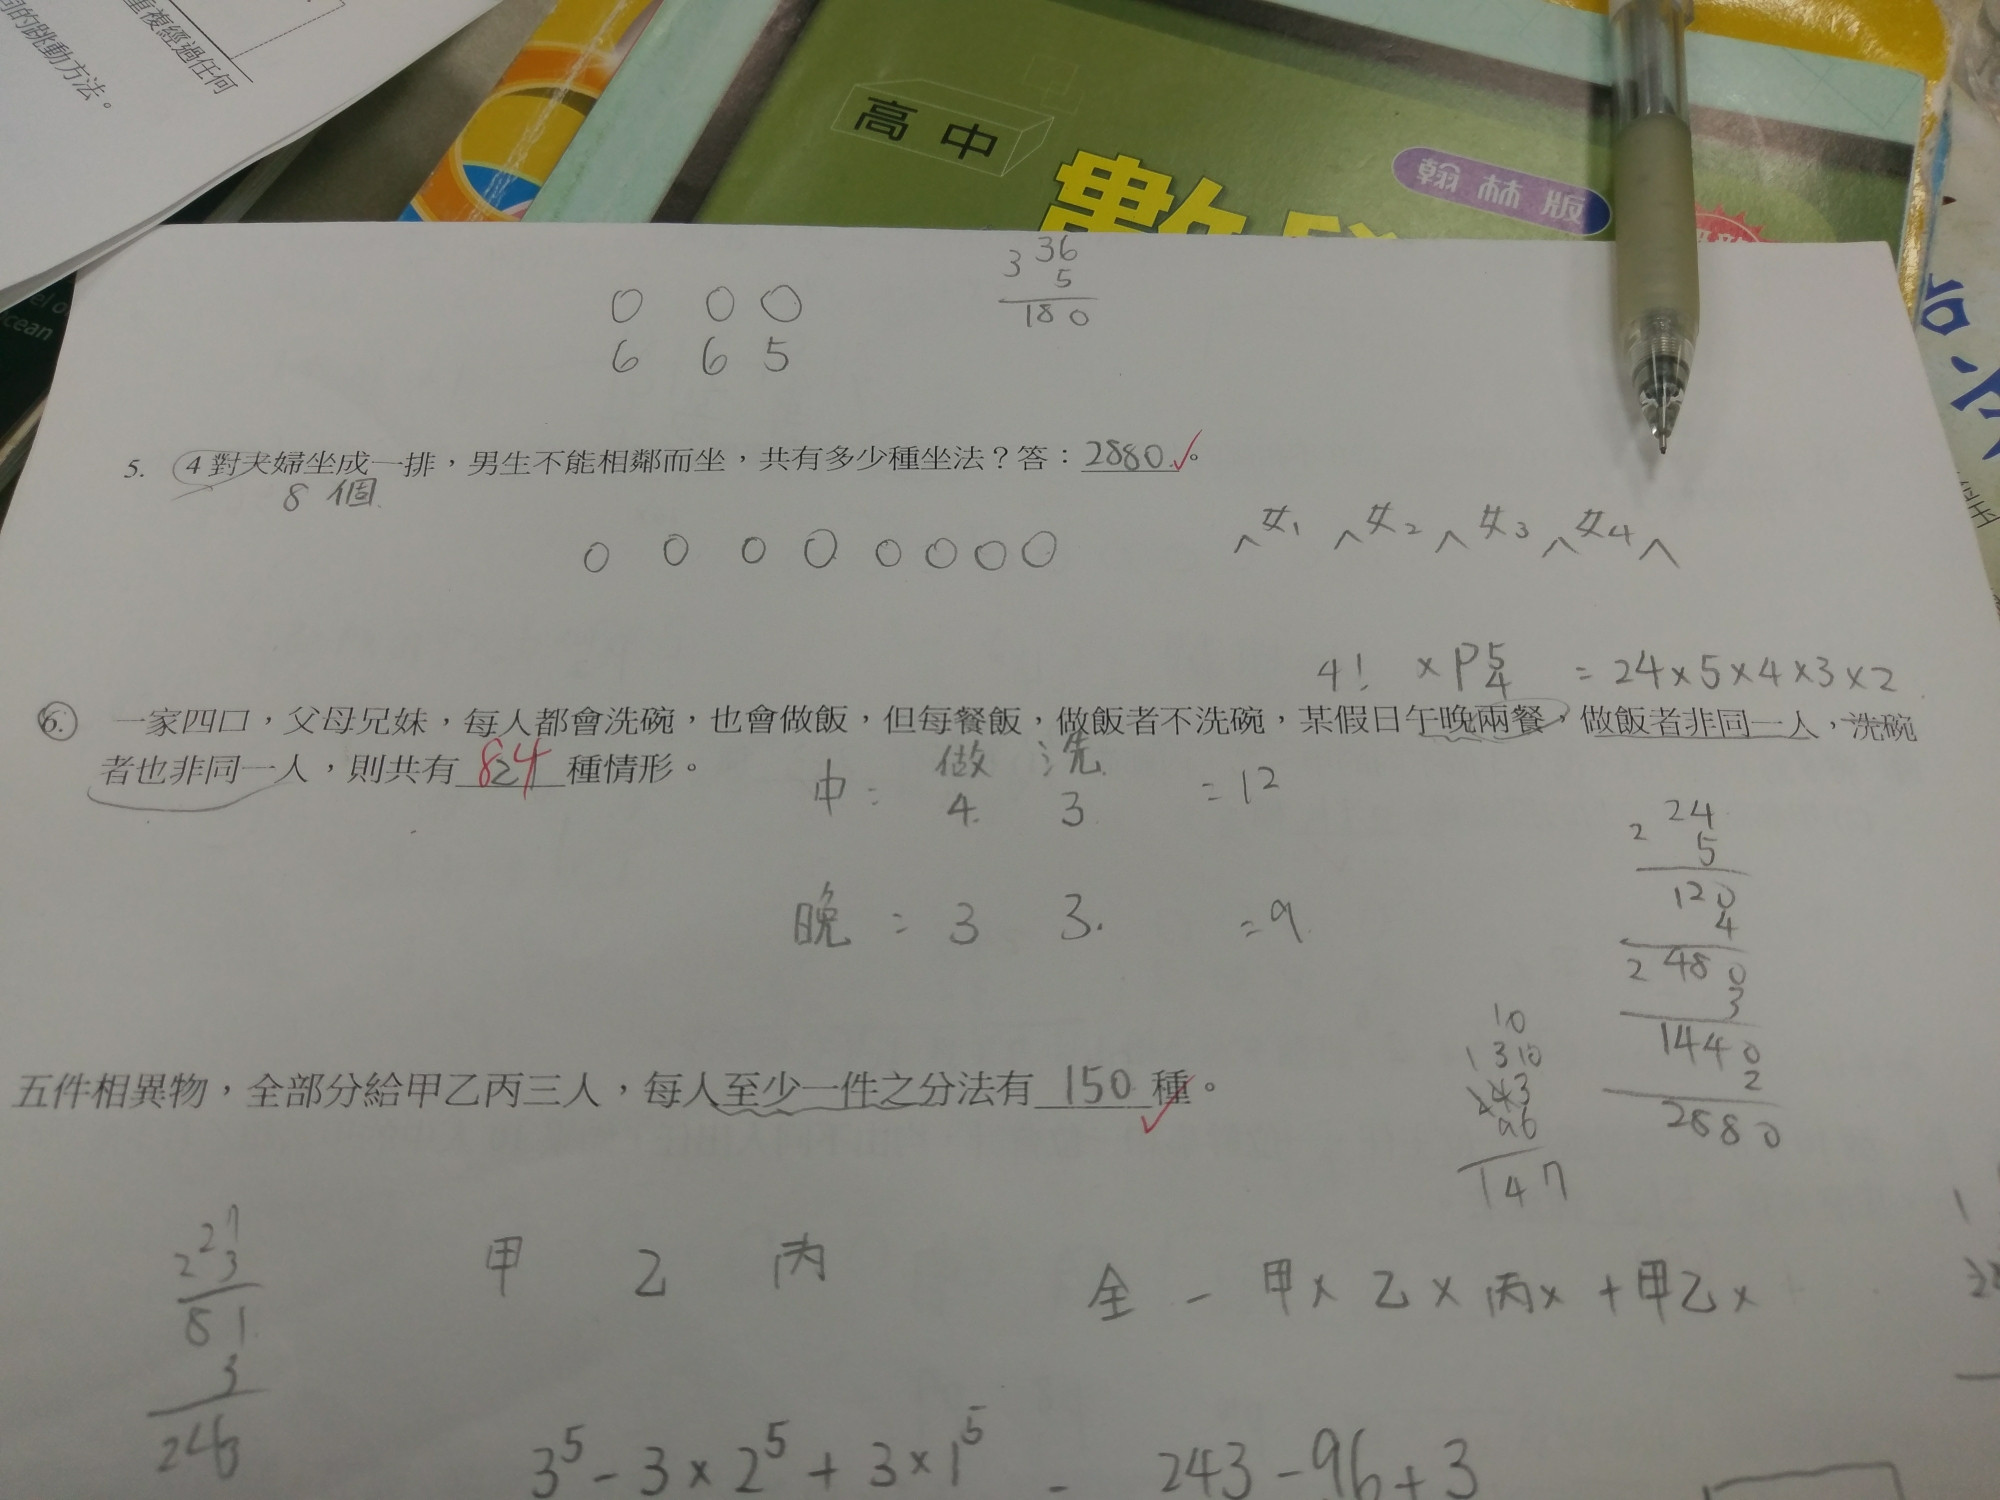 重複經過任何
同的跳動方法。
高中
翰林版
數
el o
cean
36
3 5
180
6 6 5
5. 4對夫婦坐成一排，男生不能相鄰而坐，共有多少種坐法？答：2880。
8個
女1 女2 女3 女4
4! × P⁵₄ = 24×5×4×3×2
6. 一家四口，父母兄妹，每人都會洗碗，也會做飯，但每餐飯，做飯者不洗碗，某假日午晚兩餐，做飯者非同一人，洗碗
者也非同一人，則共有 84 種情形。
做 洗
中= 4 3 =12
晚= 3 3. =9
24
2 5
120
4
2 480
3
1440
2
2880
10
1 3 10
243
96
147
五件相異物，全部分給甲乙丙三人，每人至少一件之分法有 150 種。
27
2 3
81
3
243
甲 乙 丙
全 - 甲× 乙× 丙× + 甲乙×
3⁵ - 3×2⁵ + 3×1⁵ = 243-96+3